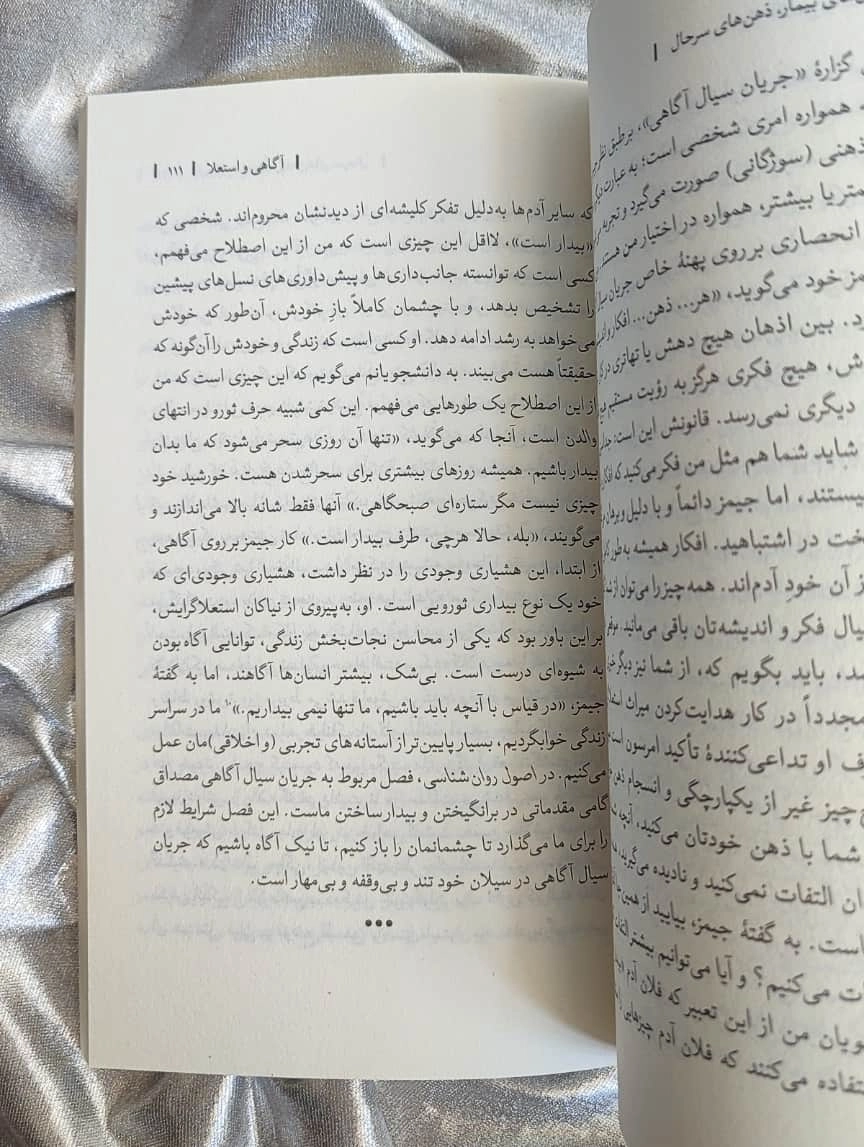 بیمار، ذهن‌های سرحال |
گزارهٔ «جریان سیال آگاهی»، برطبق نظر
همواره امری شخصی است؛ به عبارت
ذهنی (سوژگانی) صورت می‌گیرد و تجربه
یا بیشتر، همواره در اختیار من هستند
انحصاری برروی پهنهٔ خاص جریان سیال
خود می‌گوید، «هر... ذهن... افکار
بین اذهان هیچ دهش یا تهاتری در
هیچ فکری هرگز به رؤیت مستقیم
دیگری نمی‌رسد. قانونش این است:
شاید شما هم مثل من فکر می‌کنید که
نیستند، اما جیمز دائماً و با دلیل و برهان
در اشتباهید. افکار همیشه به‌طور
از آن خودِ آدم‌اند. همه‌چیز را می‌توان از
فکر و اندیشه‌تان باقی می‌مانید.
باید بگویم که، از شما نیز دیگر
مجدداً در کار هدایت‌کردن میراث
او تداعی‌کنندهٔ تأکید امرسون است
چیز غیر از یکپارچگی و انسجام
شما با ذهن خودتان می‌کنید، آنچه
التفات نمی‌کنید و نادیده می‌گیرید،
است. به گفتهٔ جیمز، بیایید از همین
می‌کنیم؟ و آیا می‌توانیم بیشتر التفات
من از این تعبیر که فلان آدم
می‌کنند که فلان آدم چیزهایی را
| آگاهی و استعلا | ۱۱۱ |
که سایر آدم‌ها به‌دلیل تفکر کلیشه‌ای از دیدنشان محروم‌اند. شخصی که
«بیدار است»، لااقل این چیزی است که من از این اصطلاح می‌فهمم،
کسی است که توانسته جانب‌داری‌ها و پیش‌داوری‌های نسل‌های پیشین
را تشخیص بدهد، و با چشمان کاملاً بازِ خودش، آن‌طور که خودش
می‌خواهد به رشد ادامه دهد. او کسی است که زندگی و خودش را آن‌گونه که
حقیقتاً هست می‌بیند. به دانشجویانم می‌گویم که این چیزی است که من
از این اصطلاح یک طورهایی می‌فهمم. این کمی شبیه حرف ثورو در انتهای
والدن است، آنجا که می‌گوید، «تنها آن روزی سحر می‌شود که ما بدان
بیدار باشیم. همیشه روزهای بیشتری برای سحرشدن هست. خورشید خود
چیزی نیست مگر ستاره‌ای صبحگاهی.» آنها فقط شانه بالا می‌اندازند و
می‌گویند، «بله، حالا هرچی، طرف بیدار است.» کار جیمز بر روی آگاهی،
از ابتدا، این هشیاری وجودی را در نظر داشت، هشیاری وجودی‌ای که
خود یک نوع بیداری ثورویی است. او، به‌پیروی از نیاکان استعلاگرایش،
بر این باور بود که یکی از محاسن نجات‌بخش زندگی، توانایی آگاه بودن
به شیوه‌ای درست است. بی‌شک، بیشتر انسان‌ها آگاهند، اما به گفتهٔ
جیمز، «در قیاس با آنچه باید باشیم، ما تنها نیمی بیداریم.» ما در سراسر
زندگی خوابگردیم، بسیار پایین‌تر از آستانه‌های تجربی (و اخلاقی)مان عمل
می‌کنیم. در اصول روان‌شناسی، فصل مربوط به جریان سیال آگاهی مصداق
گامی مقدماتی در برانگیختن و بیدارساختن ماست. این فصل شرایط لازم
را برای ما می‌گذارد تا چشمانمان را باز کنیم، تا نیک آگاه باشیم که جریان
سیال آگاهی در سیلان خود تند و بی‌وقفه و بی‌مهار است.
•••